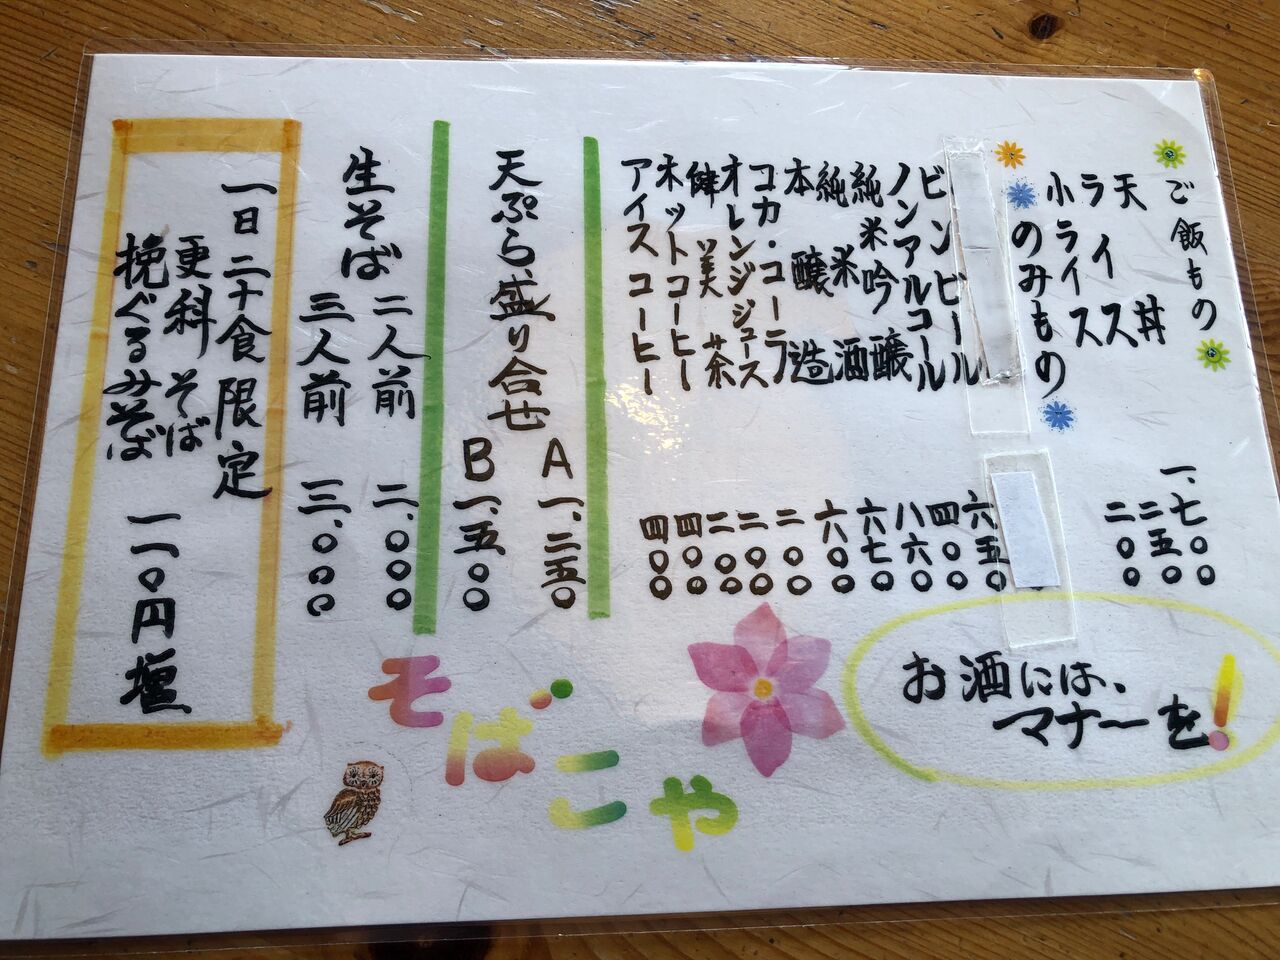 ご飯もの
天丼 一、七〇〇
ライス 二五〇
小ライス 二〇〇
のみもの
ビンビール 六五〇
ノンアルコール 四〇〇
純米吟醸 八六〇
純米酒 六七〇
本醸造 六〇〇
コカ・コーラ 二〇〇
オレンジジュース 二〇〇
健美茶 二〇〇
ホットコーヒー 四〇〇
アイスコーヒー 四〇〇
お酒には、
マナーを!
天ぷら盛り合せ
A 一、二五〇
B 一、五〇〇
生そば
二人前 二、〇〇〇
三人前 三、〇〇〇
一日二十食限定
更科そば
挽ぐるみそば 一一〇円増
そばこや